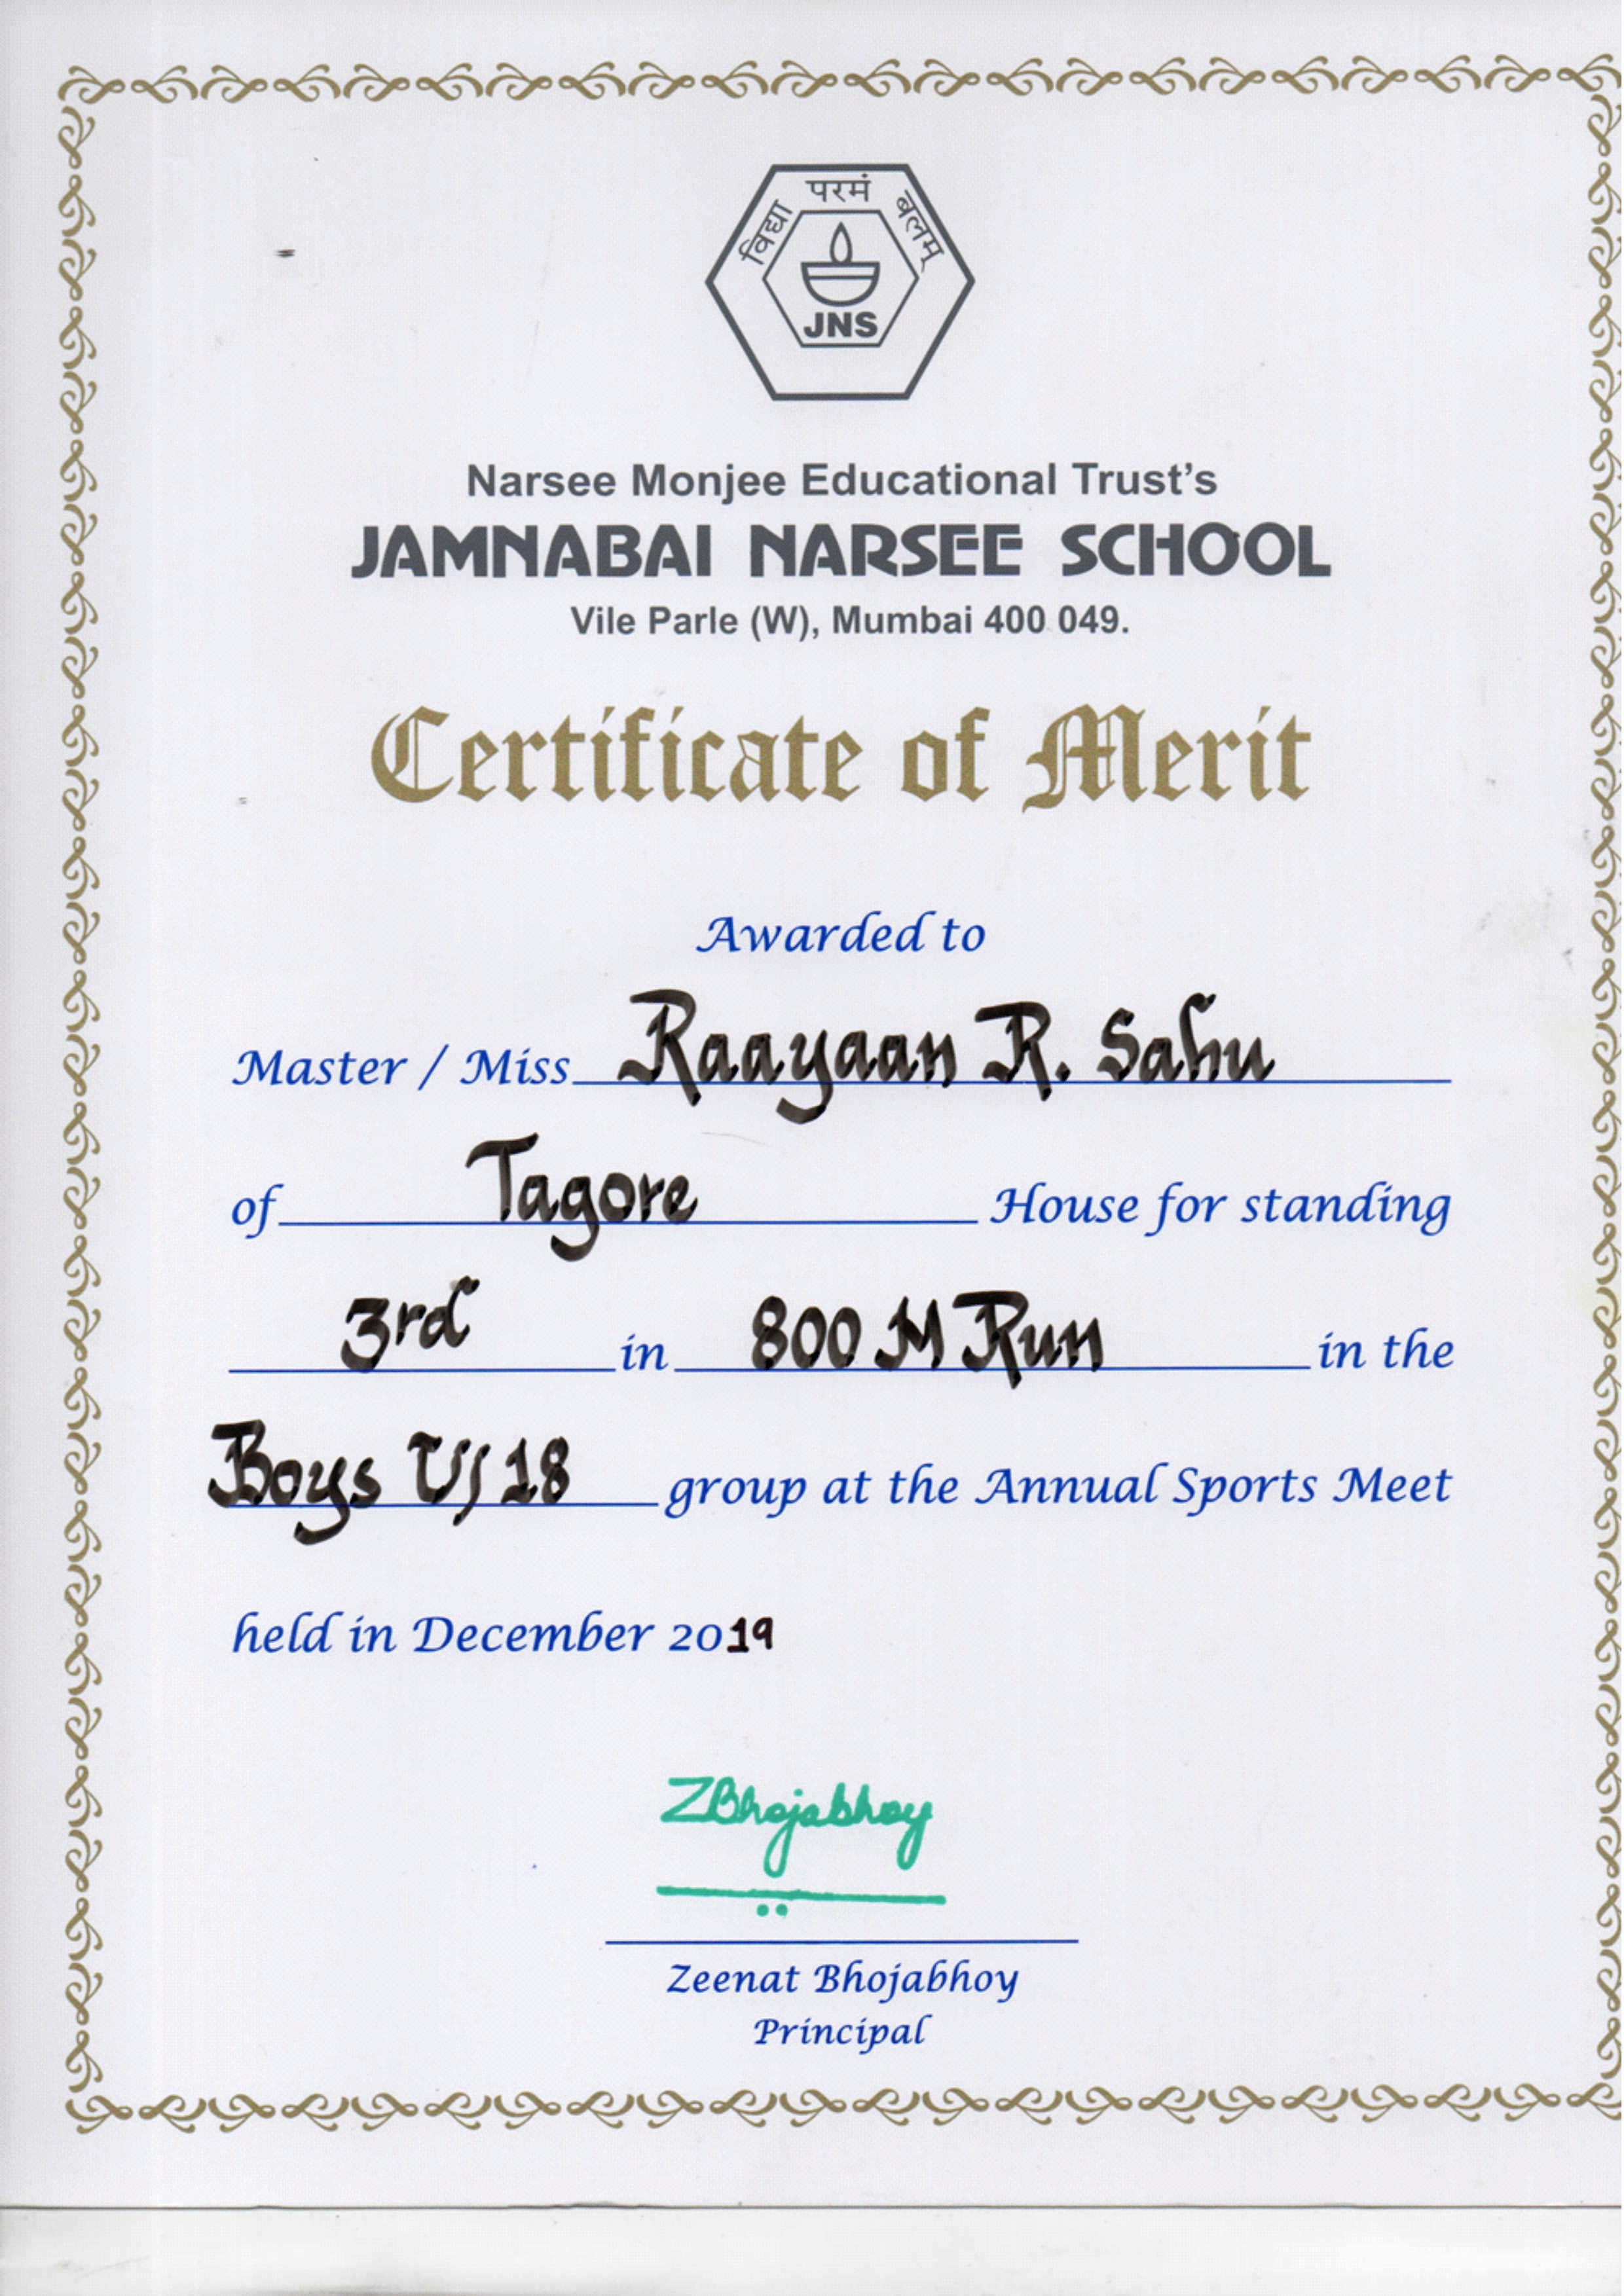 विद्या परमं बलम्
JNS
Narsee Monjee Educational Trust's
JAMNABAI NARSEE SCHOOL
Vile Parle (W), Mumbai 400 049.
Certificate of Merit
Awarded to
Master / Miss Raayaan R. Sahu
of Tagore House for standing
3rd in 800 M Run in the
Boys U/18 group at the Annual Sports Meet
held in December 2019
ZBhojabhoy
Zeenat Bhojabhoy
Principal